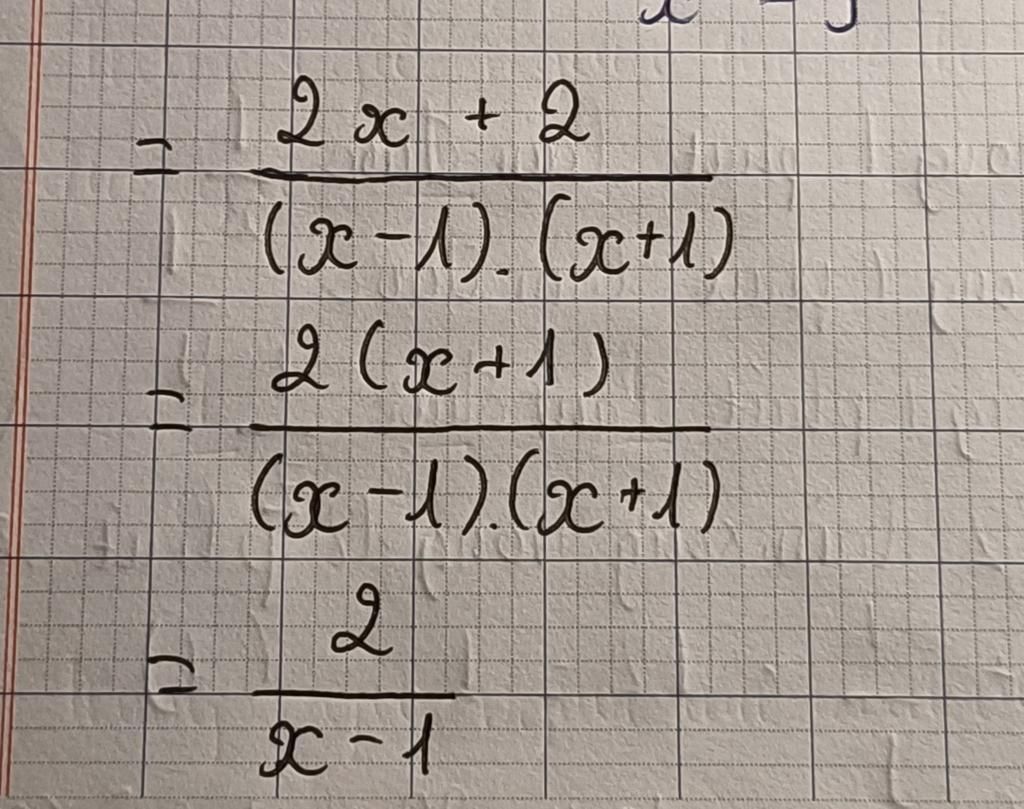 = (2x + 2) / ((x - 1).(x + 1))
= (2(x + 1)) / ((x - 1).(x + 1))
= 2 / (x - 1)